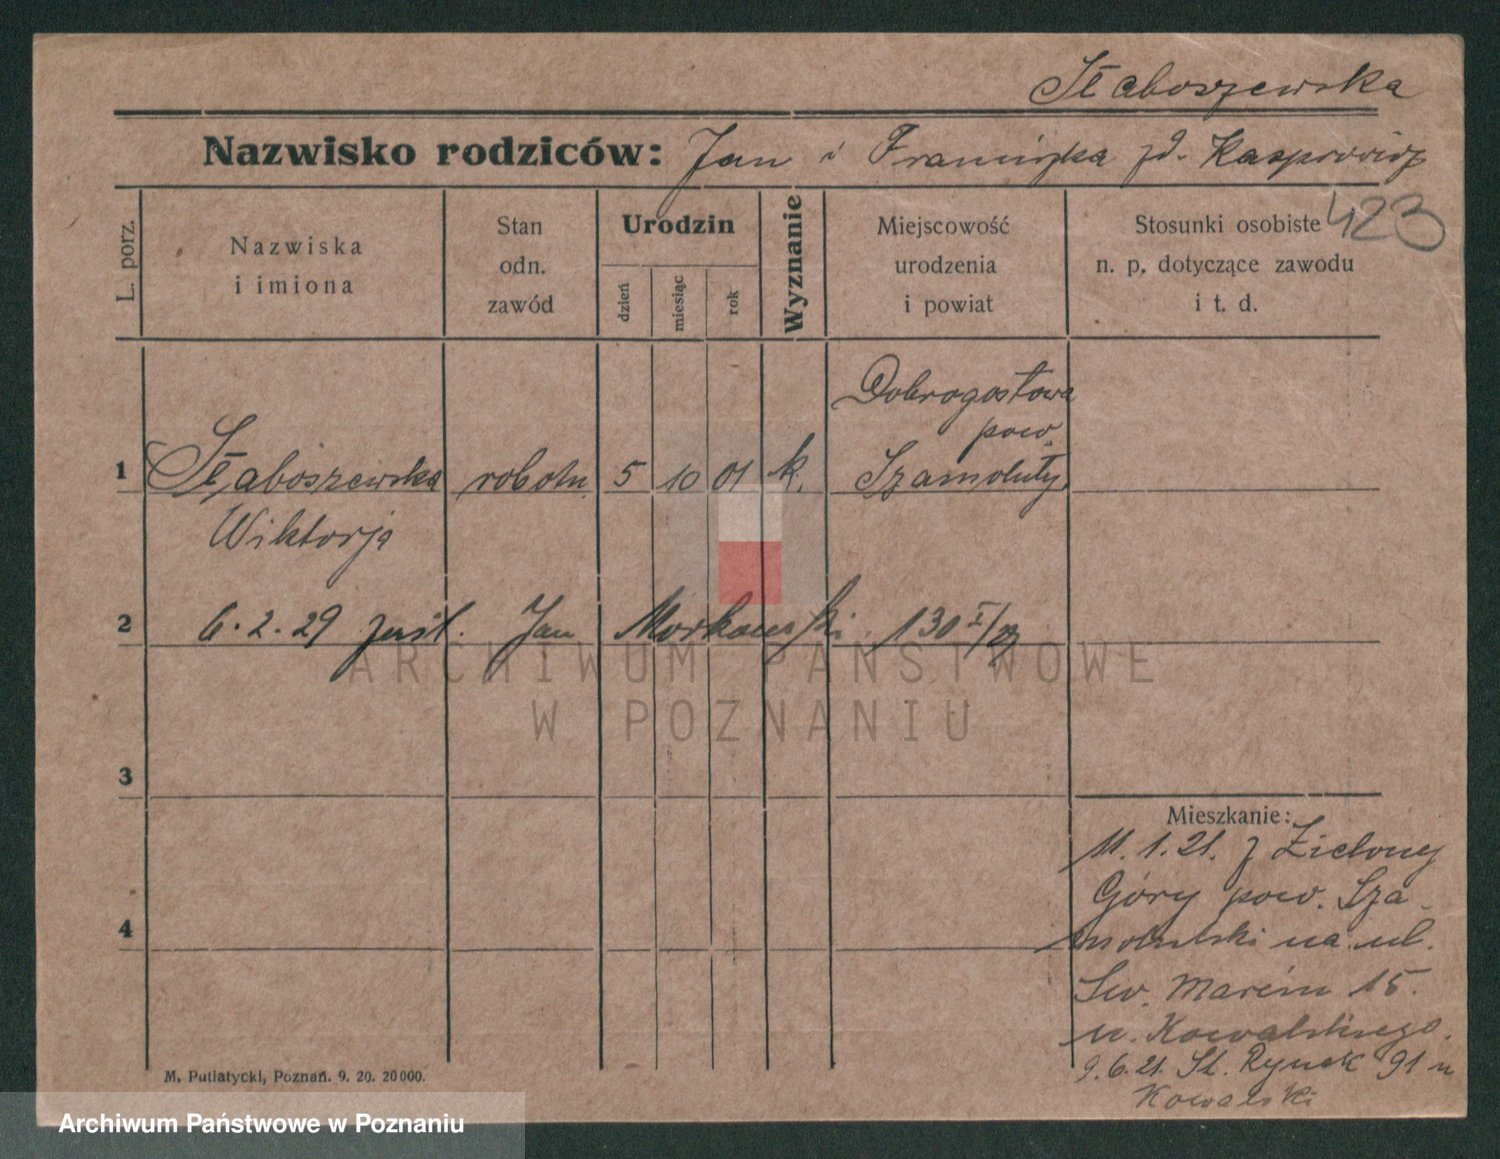 Słaboszewska
Nazwisko rodziców: Jan i Franciszka zd. Kasprowicz
423
L. porz.
Nazwiska
i imiona
Stan
odn.
zawód
Urodzin
dzień
miesiąc
rok
Wyznanie
Miejscowość
urodzenia
i powiat
Stosunki osobiste
n. p. dotyczące zawodu
i t. d.
Dobrogostowa
pow.
1 Słaboszewska robotn. 5 10 01 k. Szamotuły
Wiktorja
2 6.2.29 zaśl. Jan Morkowski 130 I/29
ARCHIWUM PAŃSTWOWE
W POZNANIU
3
Mieszkanie:
11.1.21. z Zielonej
Góry pow. Sza-
4 motulski na ul.
Św. Marcin 15.
u. Kowalskiego.
9.6.21. St. Rynek 91 u
Kowalski
M. Putiatycki, Poznań. 9. 20. 20000.
Archiwum Państwowe w Poznaniu